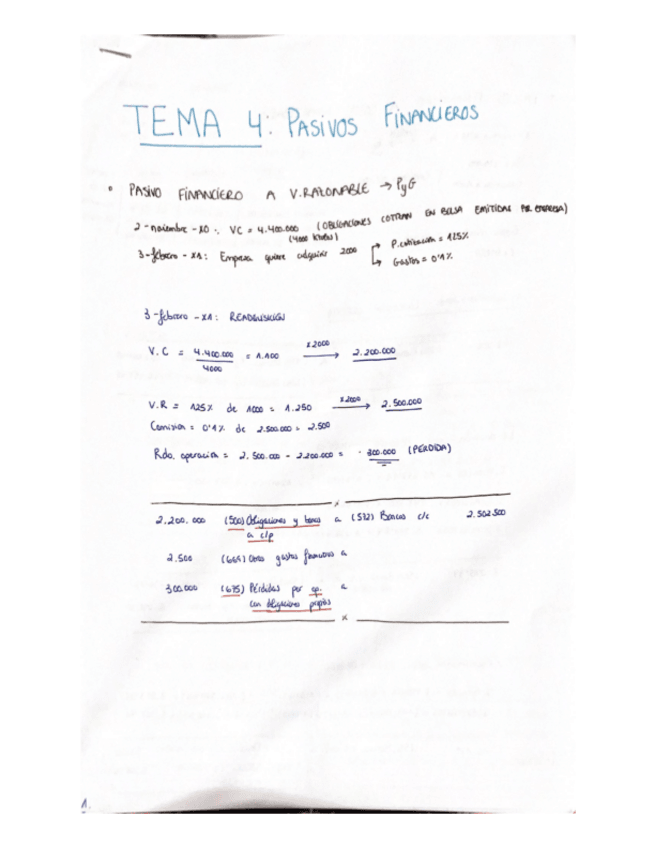 TEMA 4: PASIVOS FINANCIEROS
• PASIVO FINANCIERO A V.RAZONABLE → PyG
2-noviembre-X0: VC = 4.400.000 (OBLIGACIONES COTIZAN EN BOLSA EMITIDAS POR EMPRESA)
(4000 títulos)
3-febrero-X1: Empresa quiere adquirir 2000 → P.cotización = 125%
→ Gastos = 0'1%
3-febrero-X1: READQUISICIÓN
V.C = 4.400.000 / 4000 = 1.100 x2000 → 2.200.000
V.R = 125% de 1000 = 1.250 x2000 → 2.500.000
Comisión = 0'1% de 2.500.000 = 2.500
Rdo. operación = 2.500.000 - 2.200.000 = -300.000 (PERDIDA)
x
2.200.000 (500) Obligaciones y bonos a (572) Bancos c/c 2.502.500
a c/p
2.500 (669) Otros gastos financieros a
300.000 (675) Pérdidas por op. a
con obligaciones propias
x
1.